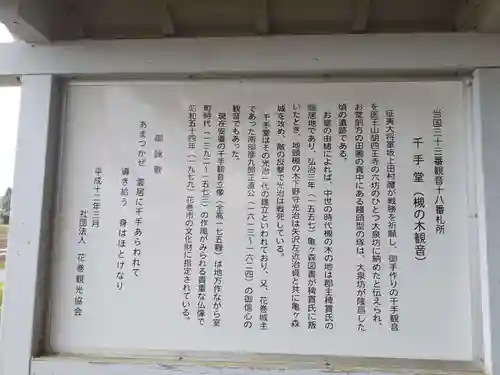 当国三十三番観音十八番札所
千手堂（槻の木観音）
征夷大将軍坂上田村麿が戦勝を祈願し、御手作りの千手観音
を医王山胡四王寺の六坊のひとつ大泉坊に納めたと伝えられ、
お堂前方の田圃の真中にある饅頭型の塚は、大泉坊が隆昌した
頃の遺跡である。
お堂の由緒によれば、中世の時代槻の木の地は郡主稗貫氏の
隠居地であり、弘治三年（一五五七）亀ヶ森図書が稗貫氏に叛
いたとき、地頭槻の木下野守光治は矢沢左近治貞と共に亀ヶ森
城を攻め、敵の反撃で光治は戦死している。
千手堂はその光治一代の建立といわれており、又、花巻城主
であった南部彦九郎正直公（一六一三～一六二四）の御信心の
観音でもあった。
現在安置の千手観音立像（全高一七五糎）は地方作ながら室
町時代（一三九二～一五七三）の作風がみられる貴重な仏像で
昭和五十四年（一九七九）花巻市の文化財に指定されている。
御詠歌
あまつかぜ 雲居に千手あらわれて
導き給う 身はほとけなり
平成十二年三月
社団法人 花巻観光協会